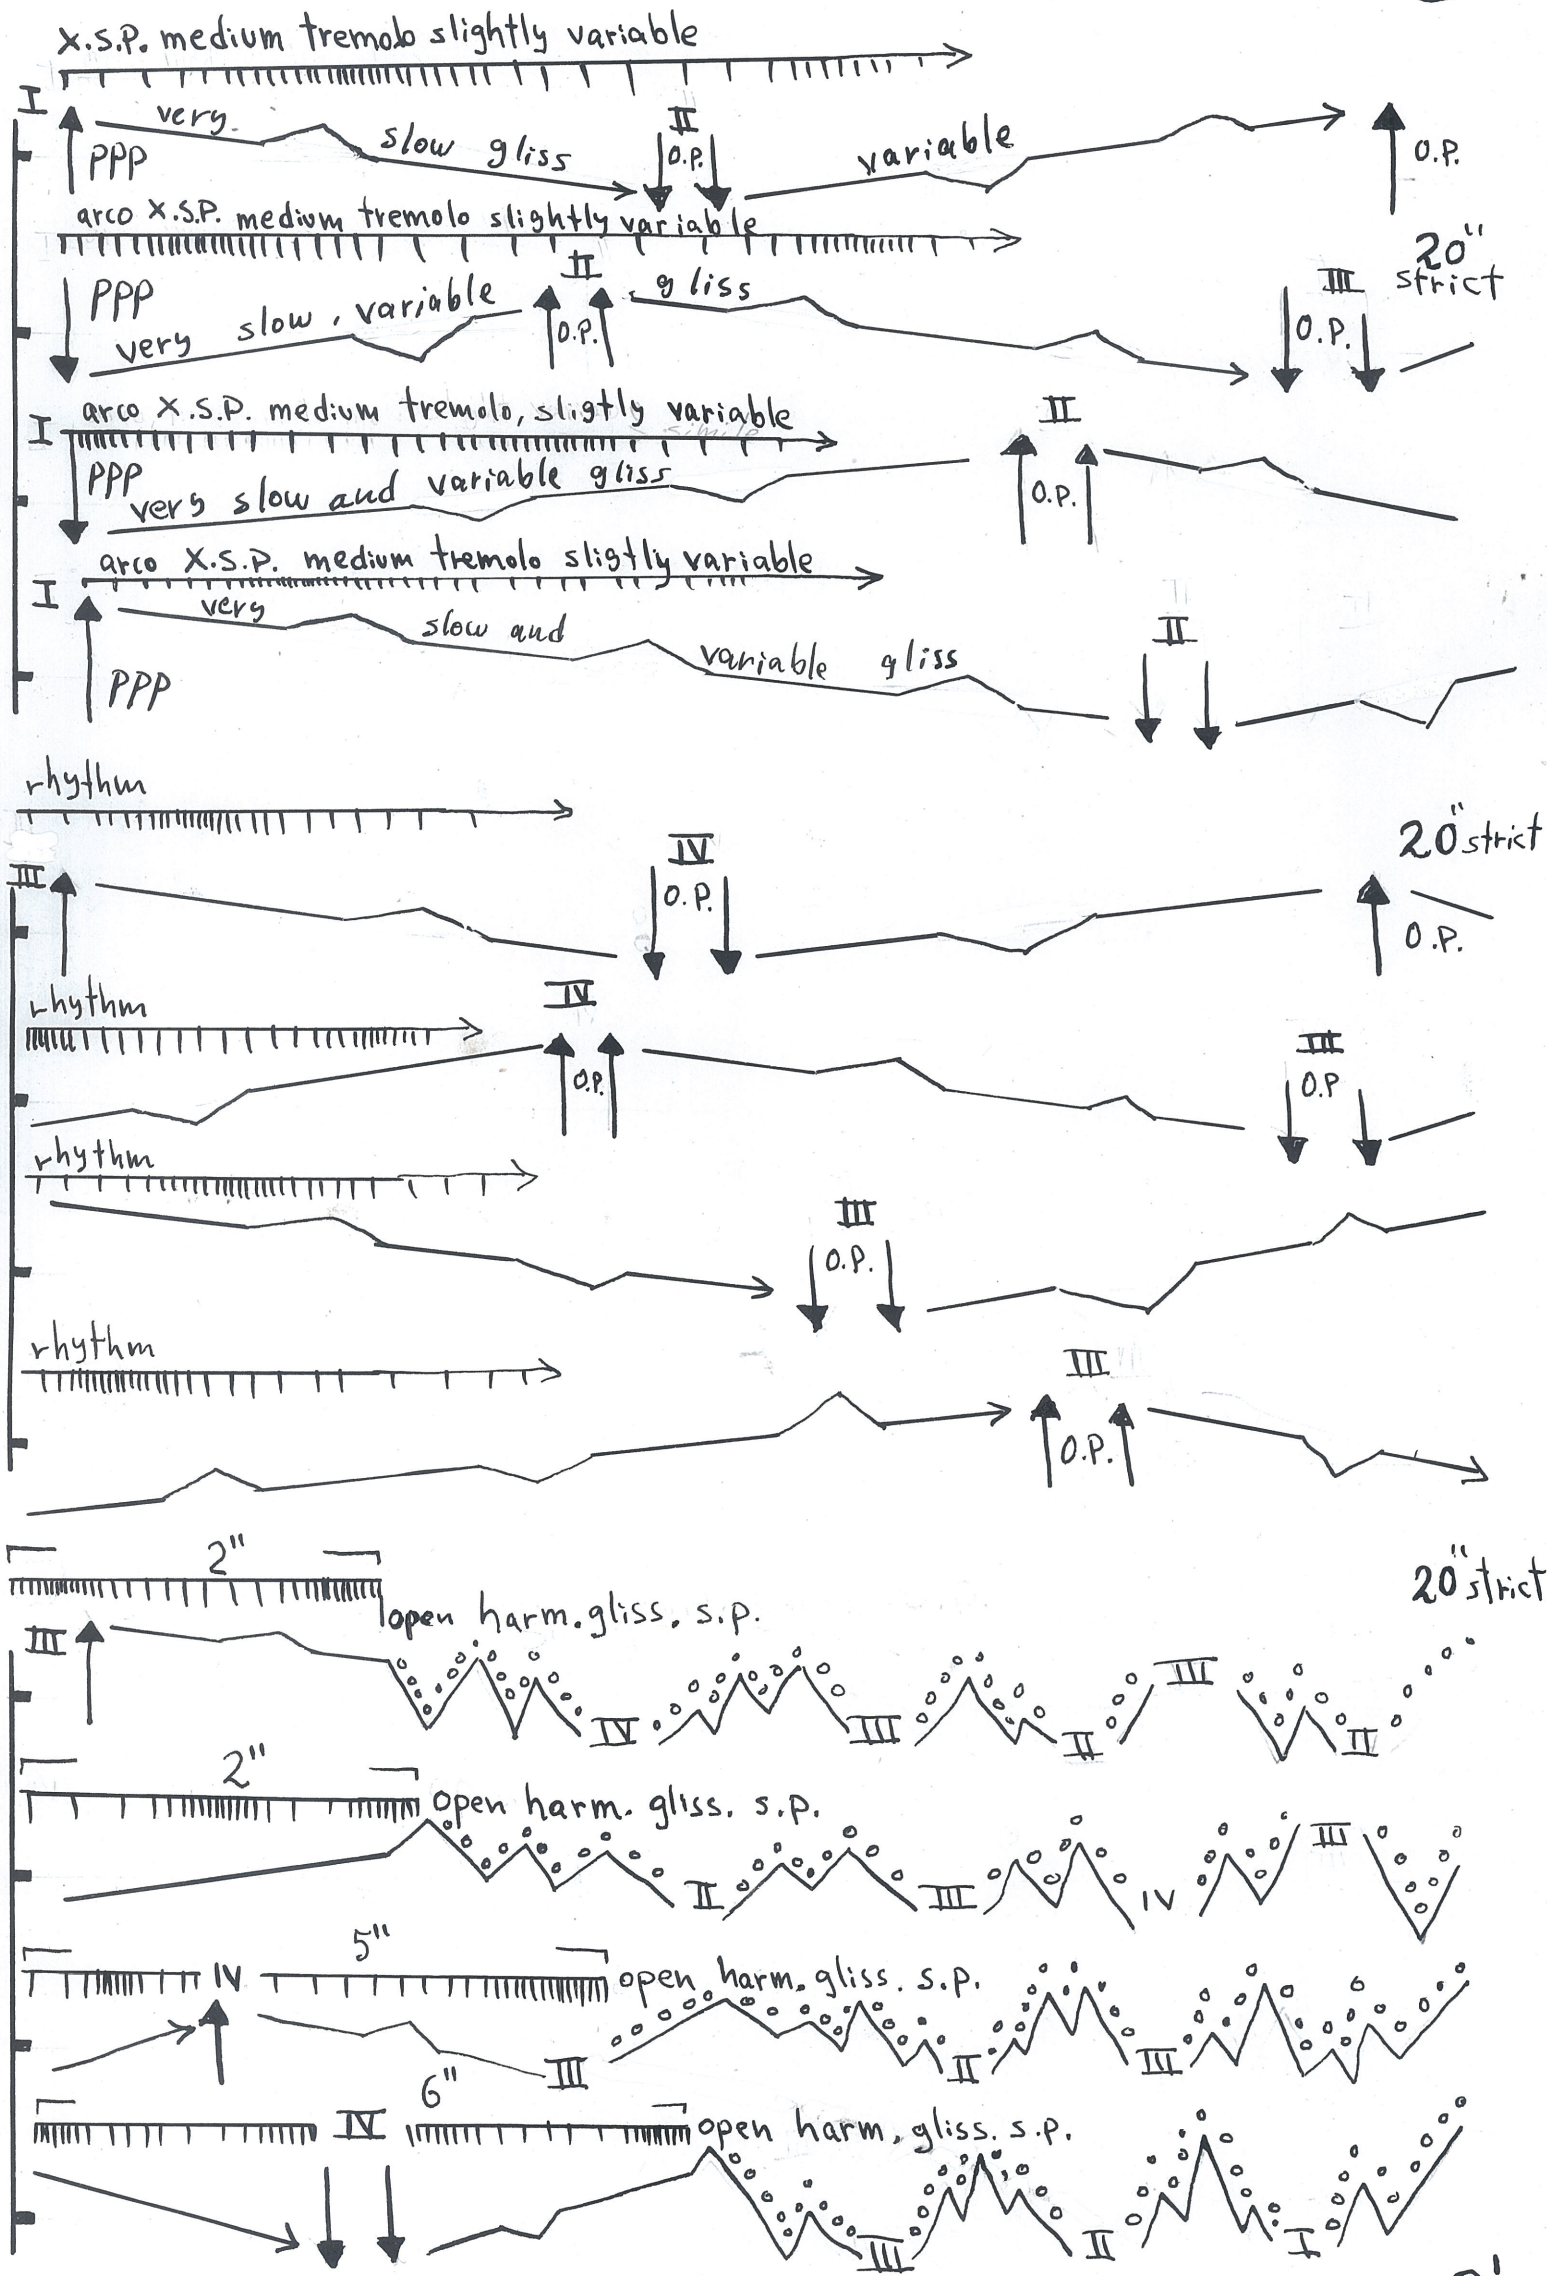 X.S.P. medium tremolo slightly variable
I
very
slow gliss
II
variable
PPP
O.P.
O.P.
arco X.S.P. medium tremolo slightly variable
20" strict
PPP
very slow, variable
II
O.P.
gliss
III
O.P.
arco X.S.P. medium tremolo, sligtly variable
simile
I
II
PPP
very slow and variable gliss
O.P.
arco X.S.P. medium tremolo sligtly variable
I
very
slow and
variable gliss
II
PPP
rhythm
20" strict
III
IV
O.P.
O.P.
rhythm
IV
O.P.
III
O.P
rhythm
III
O.P.
rhythm
III
O.P.
2"
20" strict
open harm. gliss. s.p.
III
IV
III
II
III
II
2"
open harm. gliss. s.p.
II
III
IV
III
5"
IV
open harm. gliss. s.p.
III
II
III
6"
IV
open harm. gliss. s.p.
III
II
I